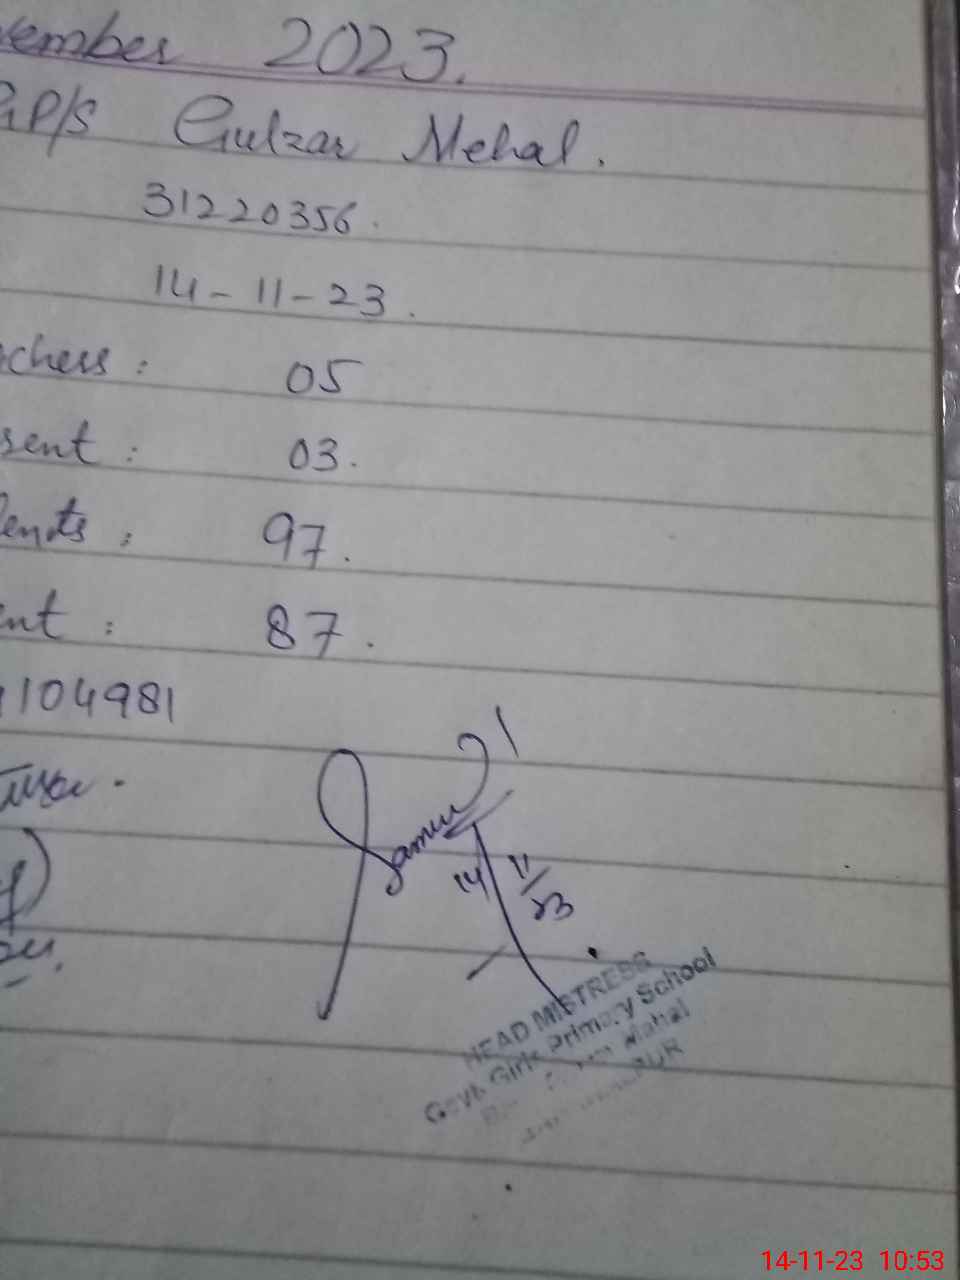 vember 2023.
GP/S Gulzar Mehal.
31220356.
14-11-23.
achers: 05
sent: 03.
dents: 97.
ent: 87.
1104981
14
11/23
HEAD MISTRESS
Govt. Girls Primary School
Mahal
PUR
14-11-23 10:53